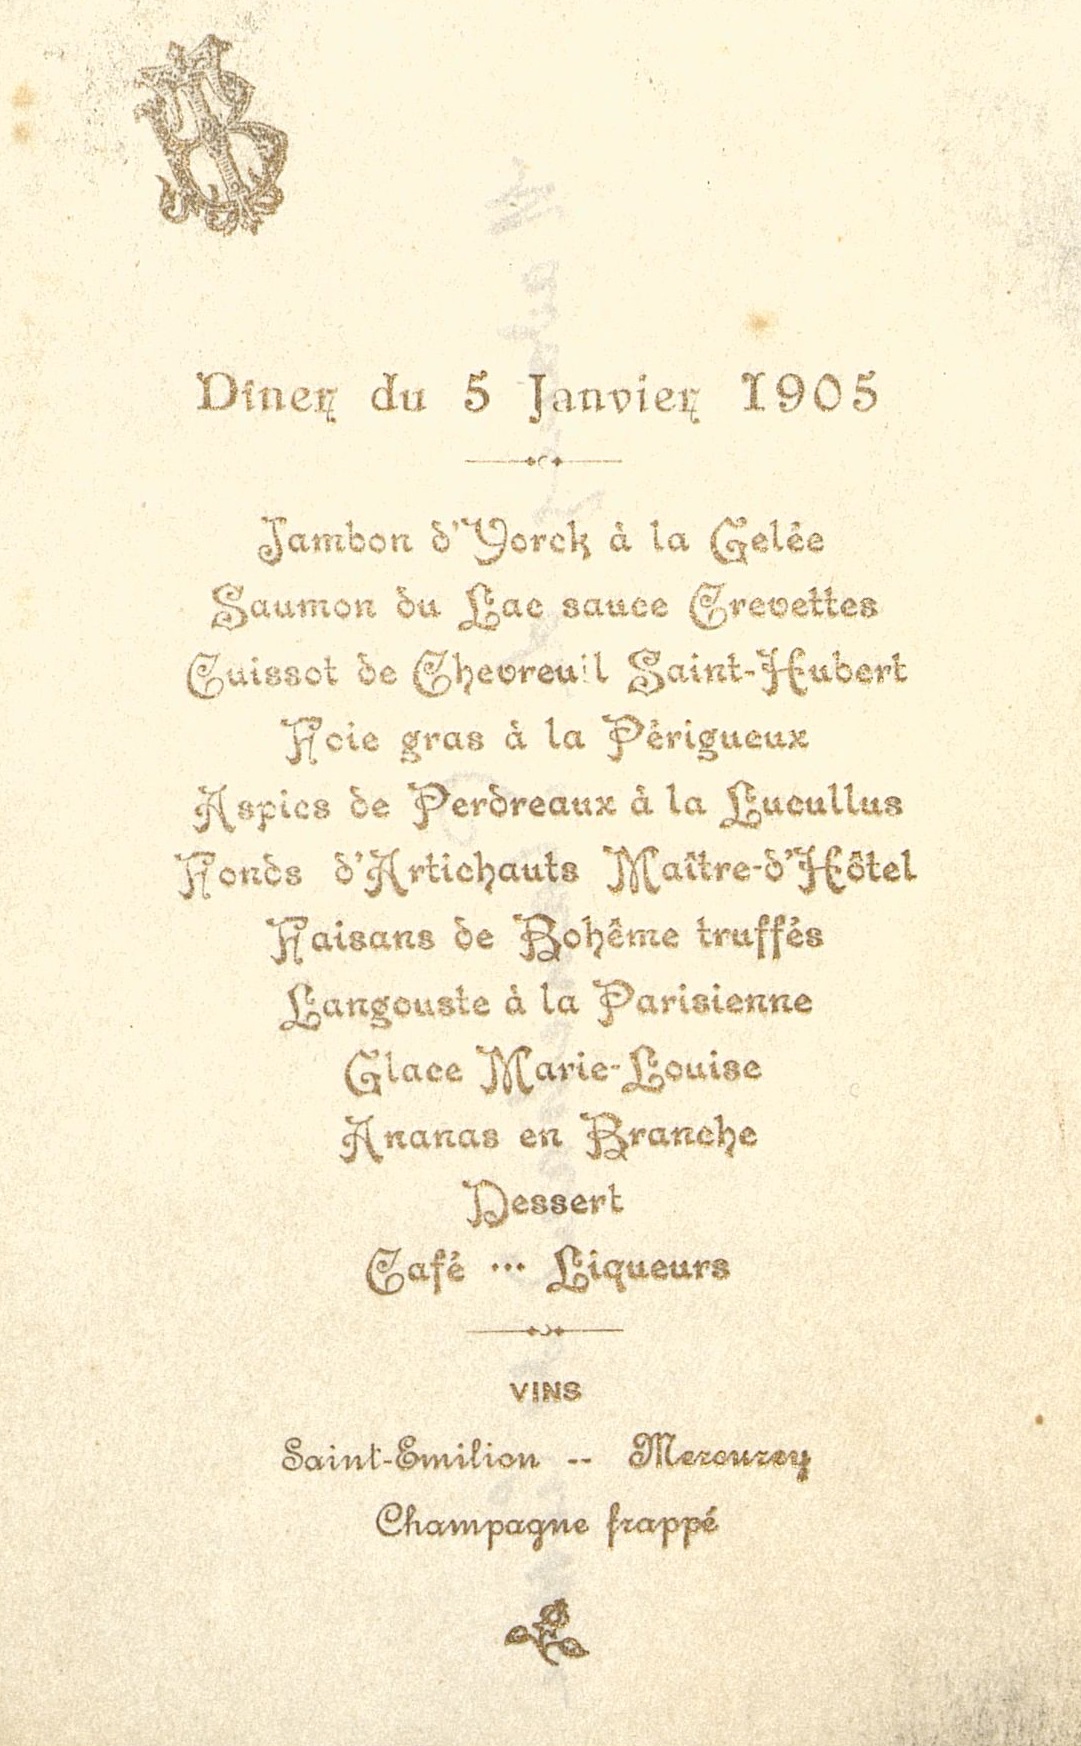 Dîner du 5 Janvier 1905
Jambon d'Yorck à la Gelée
Saumon du Lac sauce Crevettes
Cuissot de Chevreuil Saint-Hubert
Foie gras à la Périgueux
Aspics de Perdreaux à la Lucullus
Fonds d'Artichauts Maître-d'Hôtel
Faisans de Bohême truffés
Langouste à la Parisienne
Glace Marie-Louise
Ananas en Branche
Dessert
Café ... Liqueurs
VINS
Saint-Emilion -- Mercurey
Champagne frappé